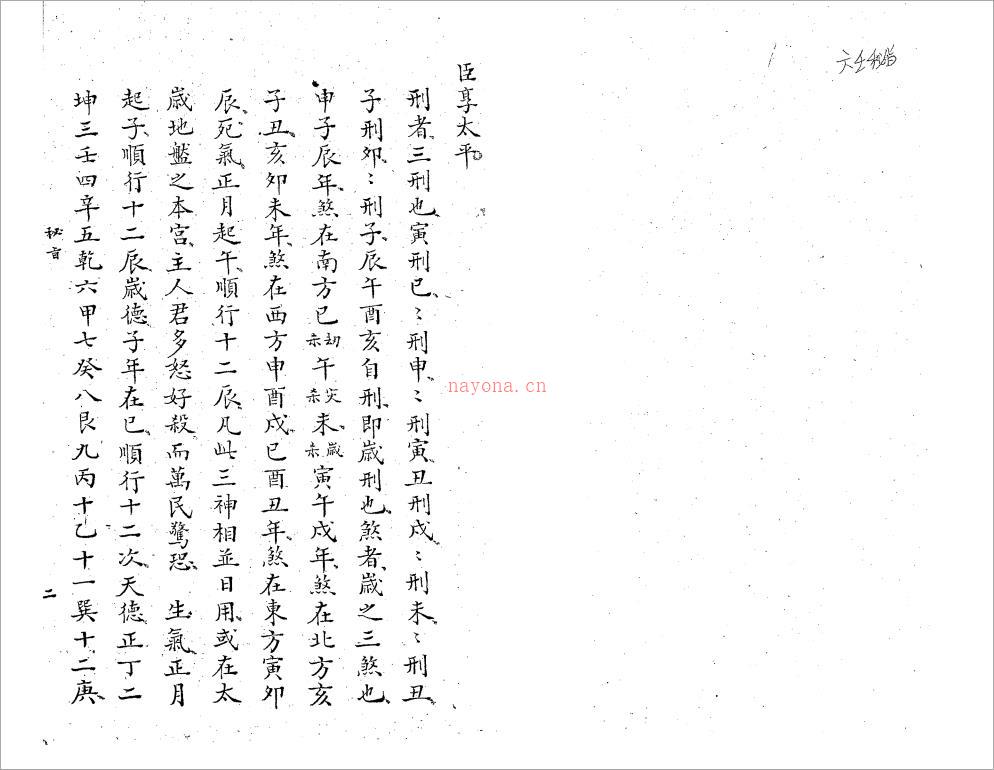 六壬秘旨
臣享太平。
刑者三刑也、寅刑巳、〻刑申、〻刑寅丑刑戌、〻刑未、〻刑丑、
子刑卯、〻刑子、辰午酉亥自刑、即歲刑也、煞者、歲之三煞也、
申子辰年、煞在南方巳劫杀午灾杀未歲杀寅午戌年、煞在北方亥
子丑、亥卯未年、煞在西方申酉戌、巳酉丑年、煞在東方寅卯
辰、死氣、正月起午、順行十二辰、凡此三神相並日用、或在太
歲地盤之本宮、主人君多怒好殺而萬民驚恐、 生氣、正月
起子、順行十二辰、歲德子年在巳、順行十二次、天德正丁二
坤三壬四辛五乾六甲七癸八艮九丙十乙十一巽十二庚、
秘旨
二
nayona.cn